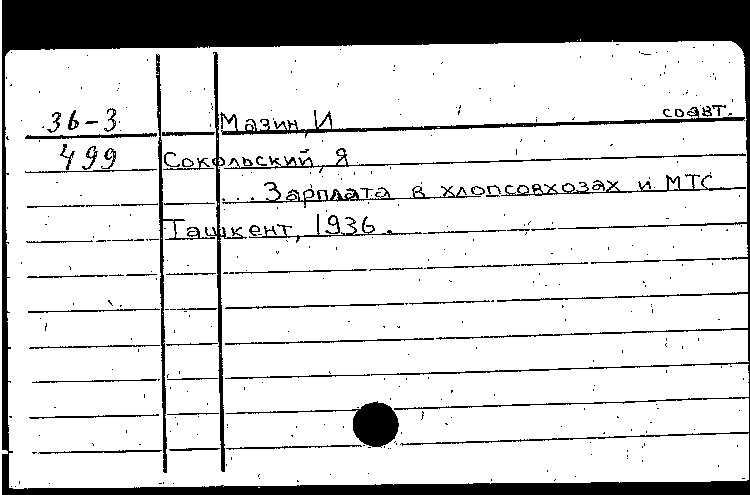 36-3 Мазин, И соавт.
499 Сокольский, Я
... Зарплата в хлопсовхозах и МТС
Ташкент, 1936.